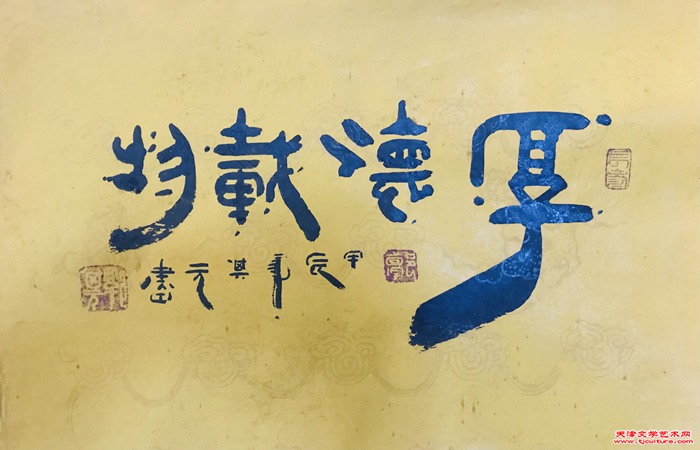 厚德載物
甲辰年其元書
天津文学艺术网
www.tjculture.com